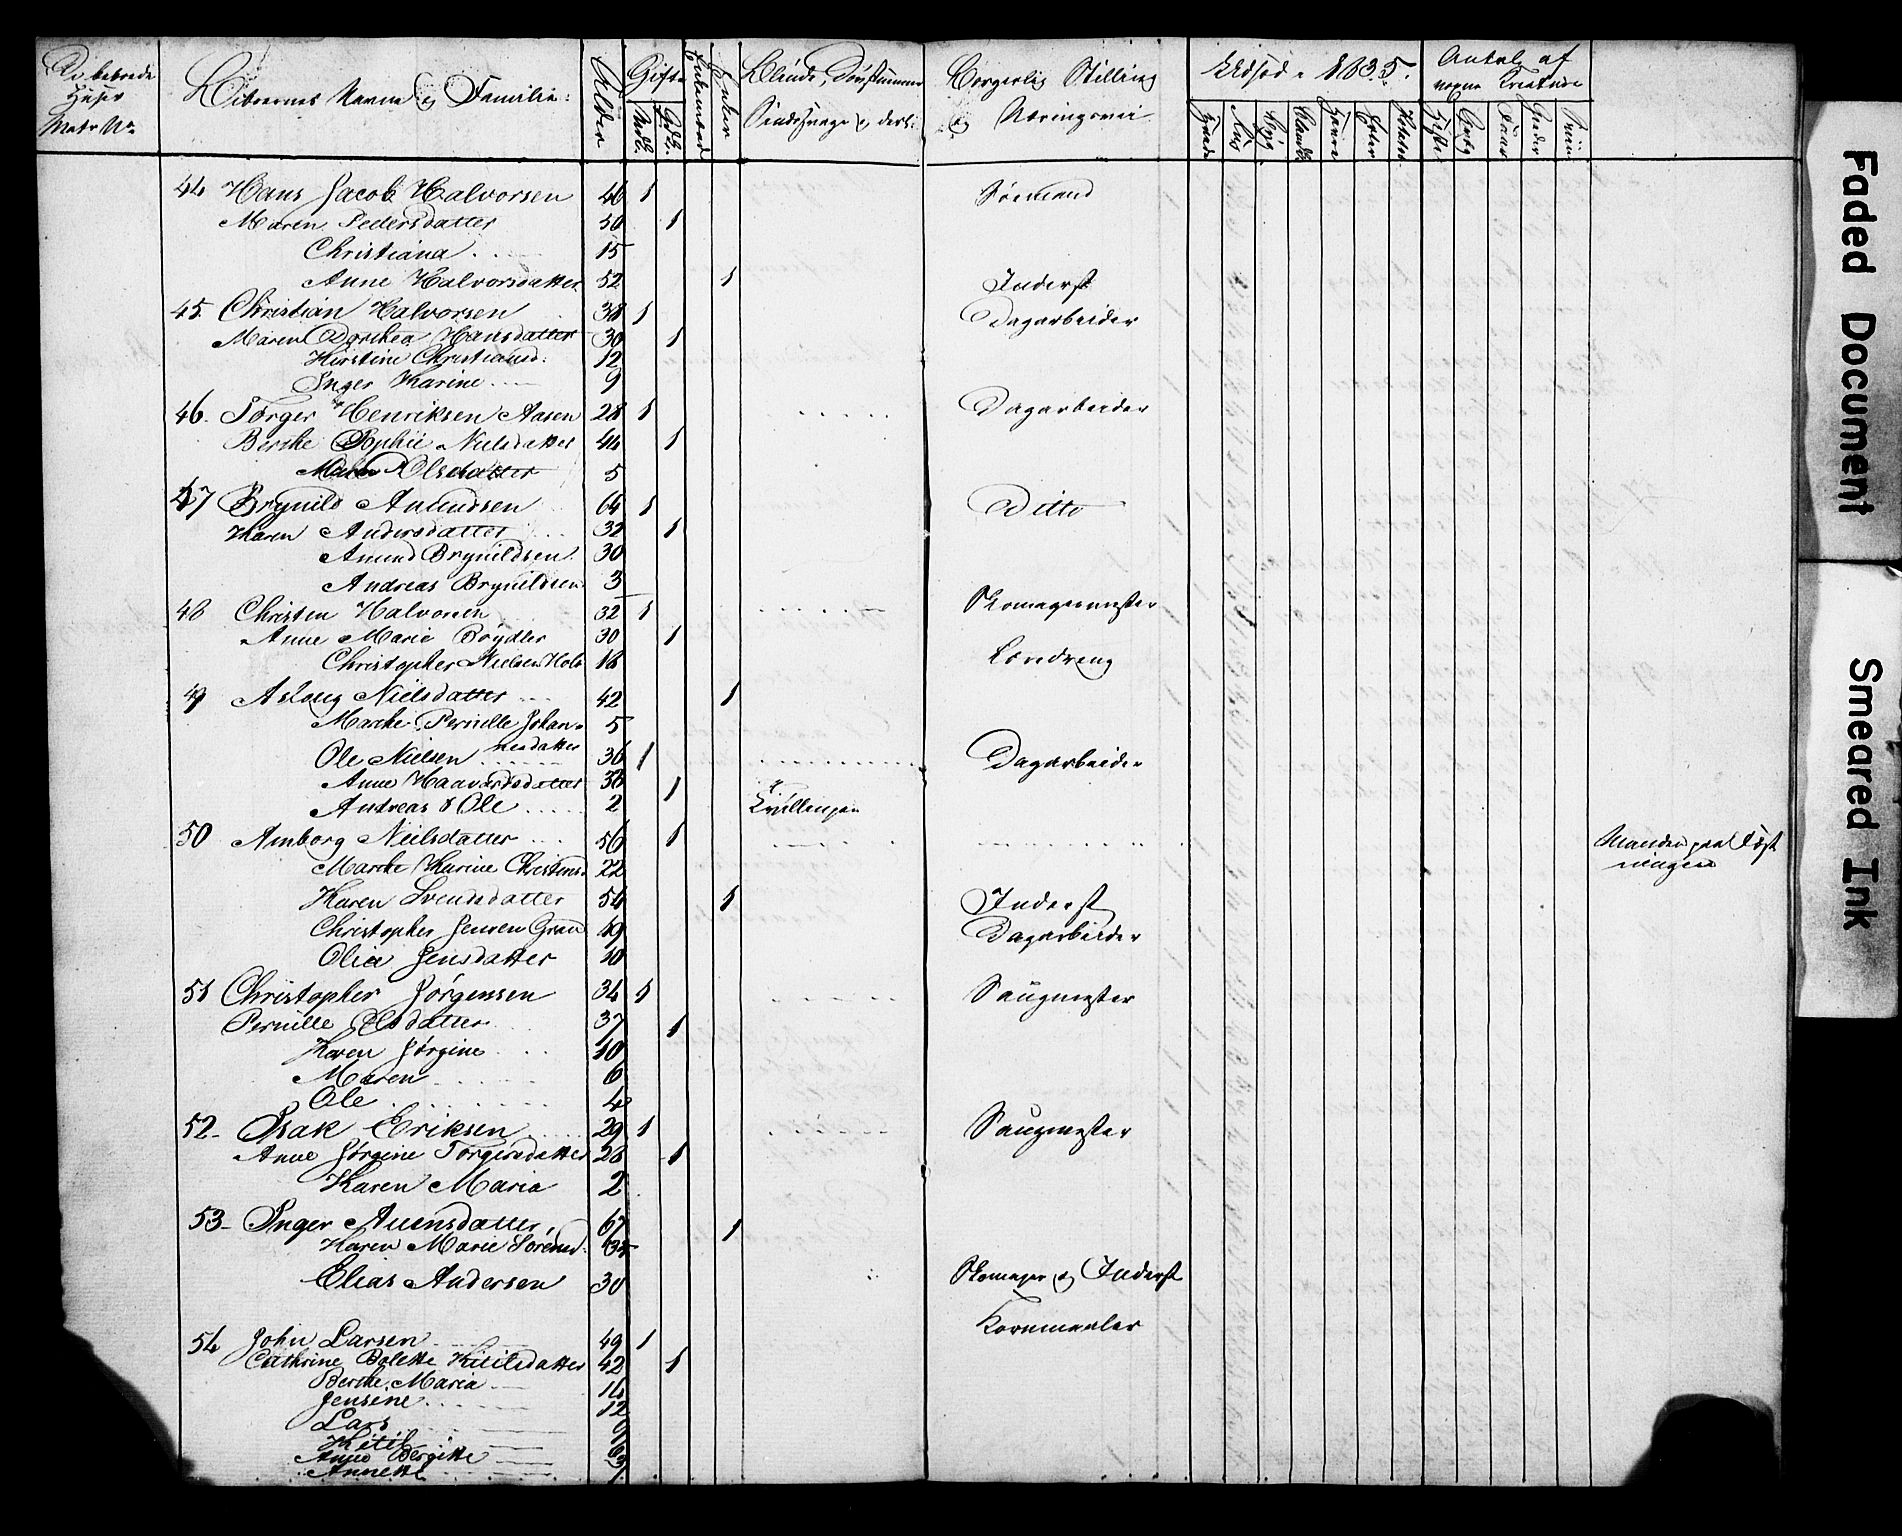 Huser
Matr No
Beboernes Navne og Familie:
Alder
Gifte
Enkemænd
Enker
Blinde, Døvstumme
Borgerlig Stilling
og Næringsvei
Udsæd 1835.
Antal af
Kreature
Hvede
Rug
Byg
Havre
Erter
Heste
Faar
44 Hans Jacob Halvorsen 46 1 Sømand
Maren Pedersdatter 50 1
Christiana 15
Anne Halvorsdatter 52 1 Inderst
45. Christian Halvorsen 38 1 Dagarbeider
Maren Dorthea Hansdatter 30 1
Kirstine Christiansd: 12
Inger Karine 9
46. Torger Henriksen Aasen 28 1 Dagarbeider
Berthe Sophie Nielsdatter 44 1
Maren Olsdatter 5
47 Brynild Amundsen 64 1 Ditto
Karen Andersdatter 32 1
Amund Brynildsen 30
Andreas Brynildsen 3
48 Christen Halvorsen 32 1 Skomagermester
Anne Marie Bøydler 30 1
Christopher Nielsen Holt 18 Læredreng
49 Aslaug Nielsdatter 42 1
Marthe Pernille Johan-
nesdatter 5
Ole Nielsen 36 1 Dagarbeider
Anne Haavordsdatter 38 1
Andreas & Ole 2 Tvillinger
50 Amborg Nielsdatter 56 1 Manden paa Fæst
ningen
Marthe Karine Christensd 22
Karen Svendsdatter 54 1 Inderst
Christopher Jensen Gran 49 Dagarbeider
Olia Jensdatter 10
51 Christopher Jørgensen 34 1 Saugmester
Pernille Olsdatter 37 1
Karen Jørgine 10
Maren 6
Ole 4
52. Isak Eriksen 29 1 Saugmester
Anne Jørgine Torgersdatter 28 1
Karen Maria 2
53. Inger Auensdatter 67 1
Karen Marie Sørensd.
Elias Andersen 30 Skomager og Inderst
54 John Larsen 49 1 Kornmaaler
Cathrine Bolette Kitilsdatter 42 1
Berthe Maria 14
Jensine 12
Lars 9
Kitil 6
Anne Bergitte 3
Annette 1
Faded Document
Smeared Ink